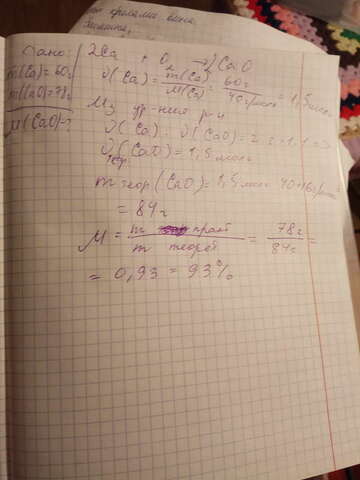 на кролами
Дано:
m(Ca)=60г
m(CaO)=78г
M(CaO)-?
2Ca + O2 → 2CaO
ν(Ca) = m(Ca)/M(Ca) = 60г/40г/моль = 1,5моль
Из ур-ния р-и
ν(Ca) : ν(CaO) = 2:2 = 1:1 =>
ν теор (CaO) = 1,5 моль
m теор (CaO) = 1,5 моль · 40+16г/
= 84г
M = m практ / m теорет = 78г/84г =
= 0,93 = 93%